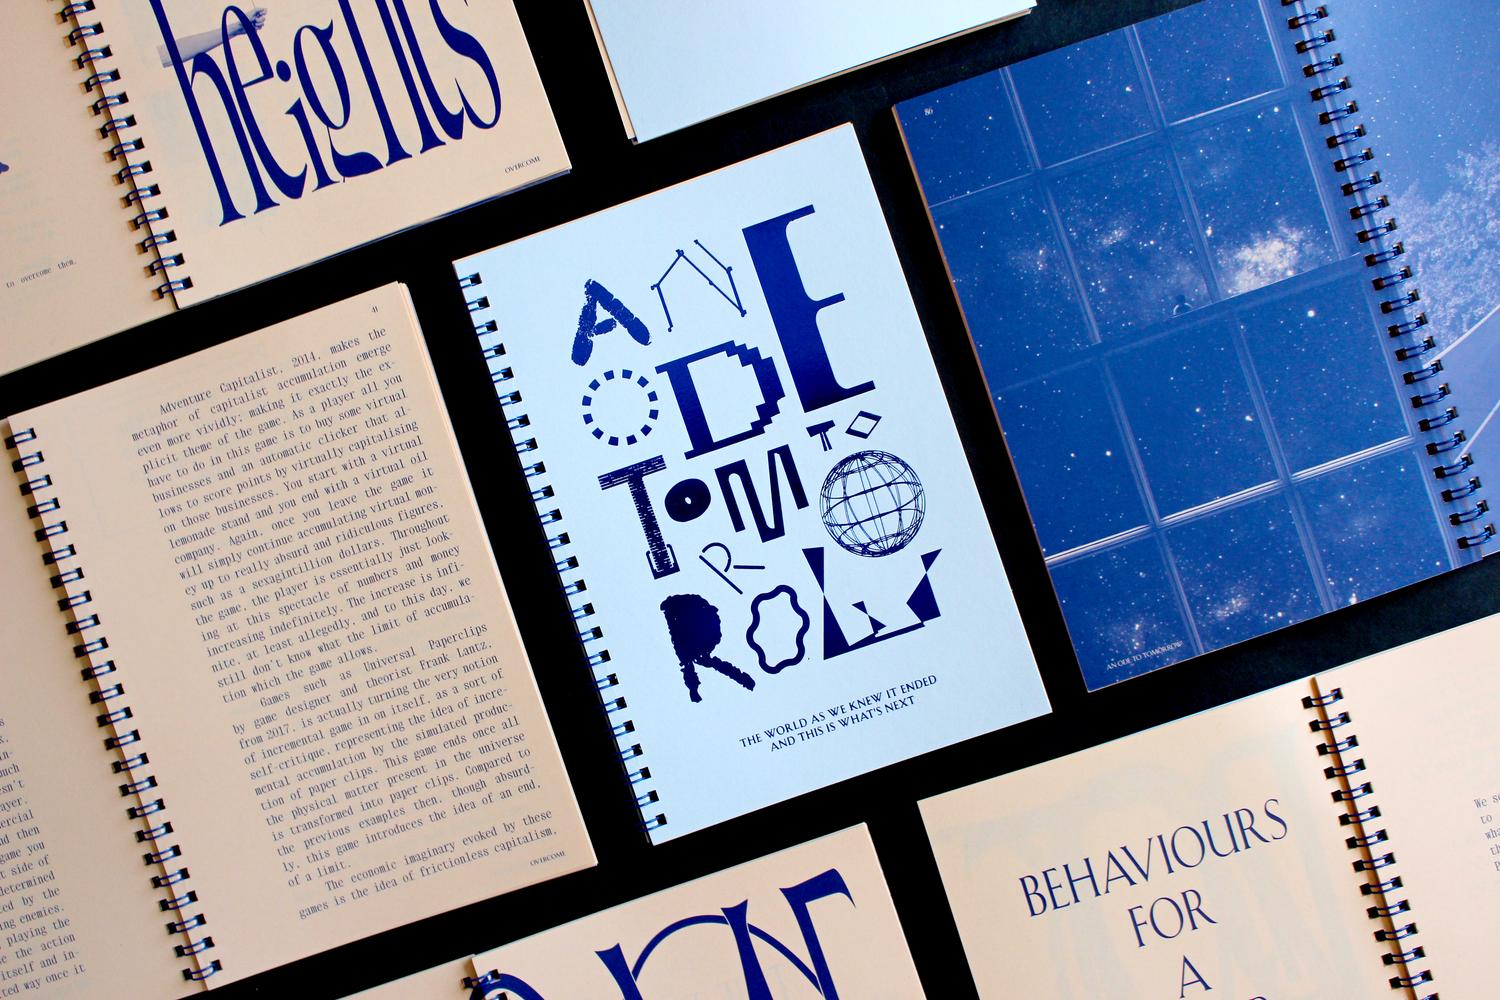 heights
OVERCOME
to overcome them.
41
Adventure Capitalist, 2014, makes the
metaphor of capitalist accumulation emerge
even more vividly; making it exactly the ex-
plicit theme of the game. As a player all you
have to do in this game is to buy some virtual
businesses and an automatic clicker that al-
lows to score points by virtually capitalising
on those businesses. You start with a virtual
lemonade stand and you end with a virtual oil
company. Again, once you leave the game it
will simply continue accumulating virtual mon-
ey up to really absurd and ridiculous figures,
such as a sexagintillion dollars. Throughout
the game, the player is essentially just look-
ing at this spectacle of numbers and money
increasing indefinitely. The increase is infi-
nite, at least allegedly, and to this day, we
still don't know what the limit of accumula-
tion which the game allows.
Games such as Universal Paperclips
by game designer and theorist Frank Lantz,
from 2017, is actually turning the very notion
of incremental game in on itself, as a sort of
self-critique, representing the idea of incre-
mental accumulation by the simulated produc-
tion of paper clips. This game ends once all
the physical matter present in the universe
is transformed into paper clips. Compared to
the previous examples then, though absurd-
ly, this game introduces the idea of an end,
of a limit.
The economic imaginary evoked by these
games is the idea of frictionless capitalism,
OVERCOME
such
esn't
layer.
mercial
and then
game you
t side of
determined
ted by the
ing enemies.
playing the
se the action
itself and in-
ted way once it
AN
ODE
TO
TOMO
R
ROW
THE WORLD AS WE KNEW IT ENDED
AND THIS IS WHAT'S NEXT
86
AN ODE TO TOMORROW
BEHAVIOURS
FOR
A
We s
to
wha